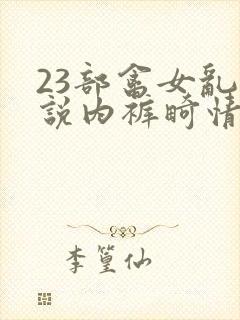 23部畲女乱
說内裤畸情
李篁仙